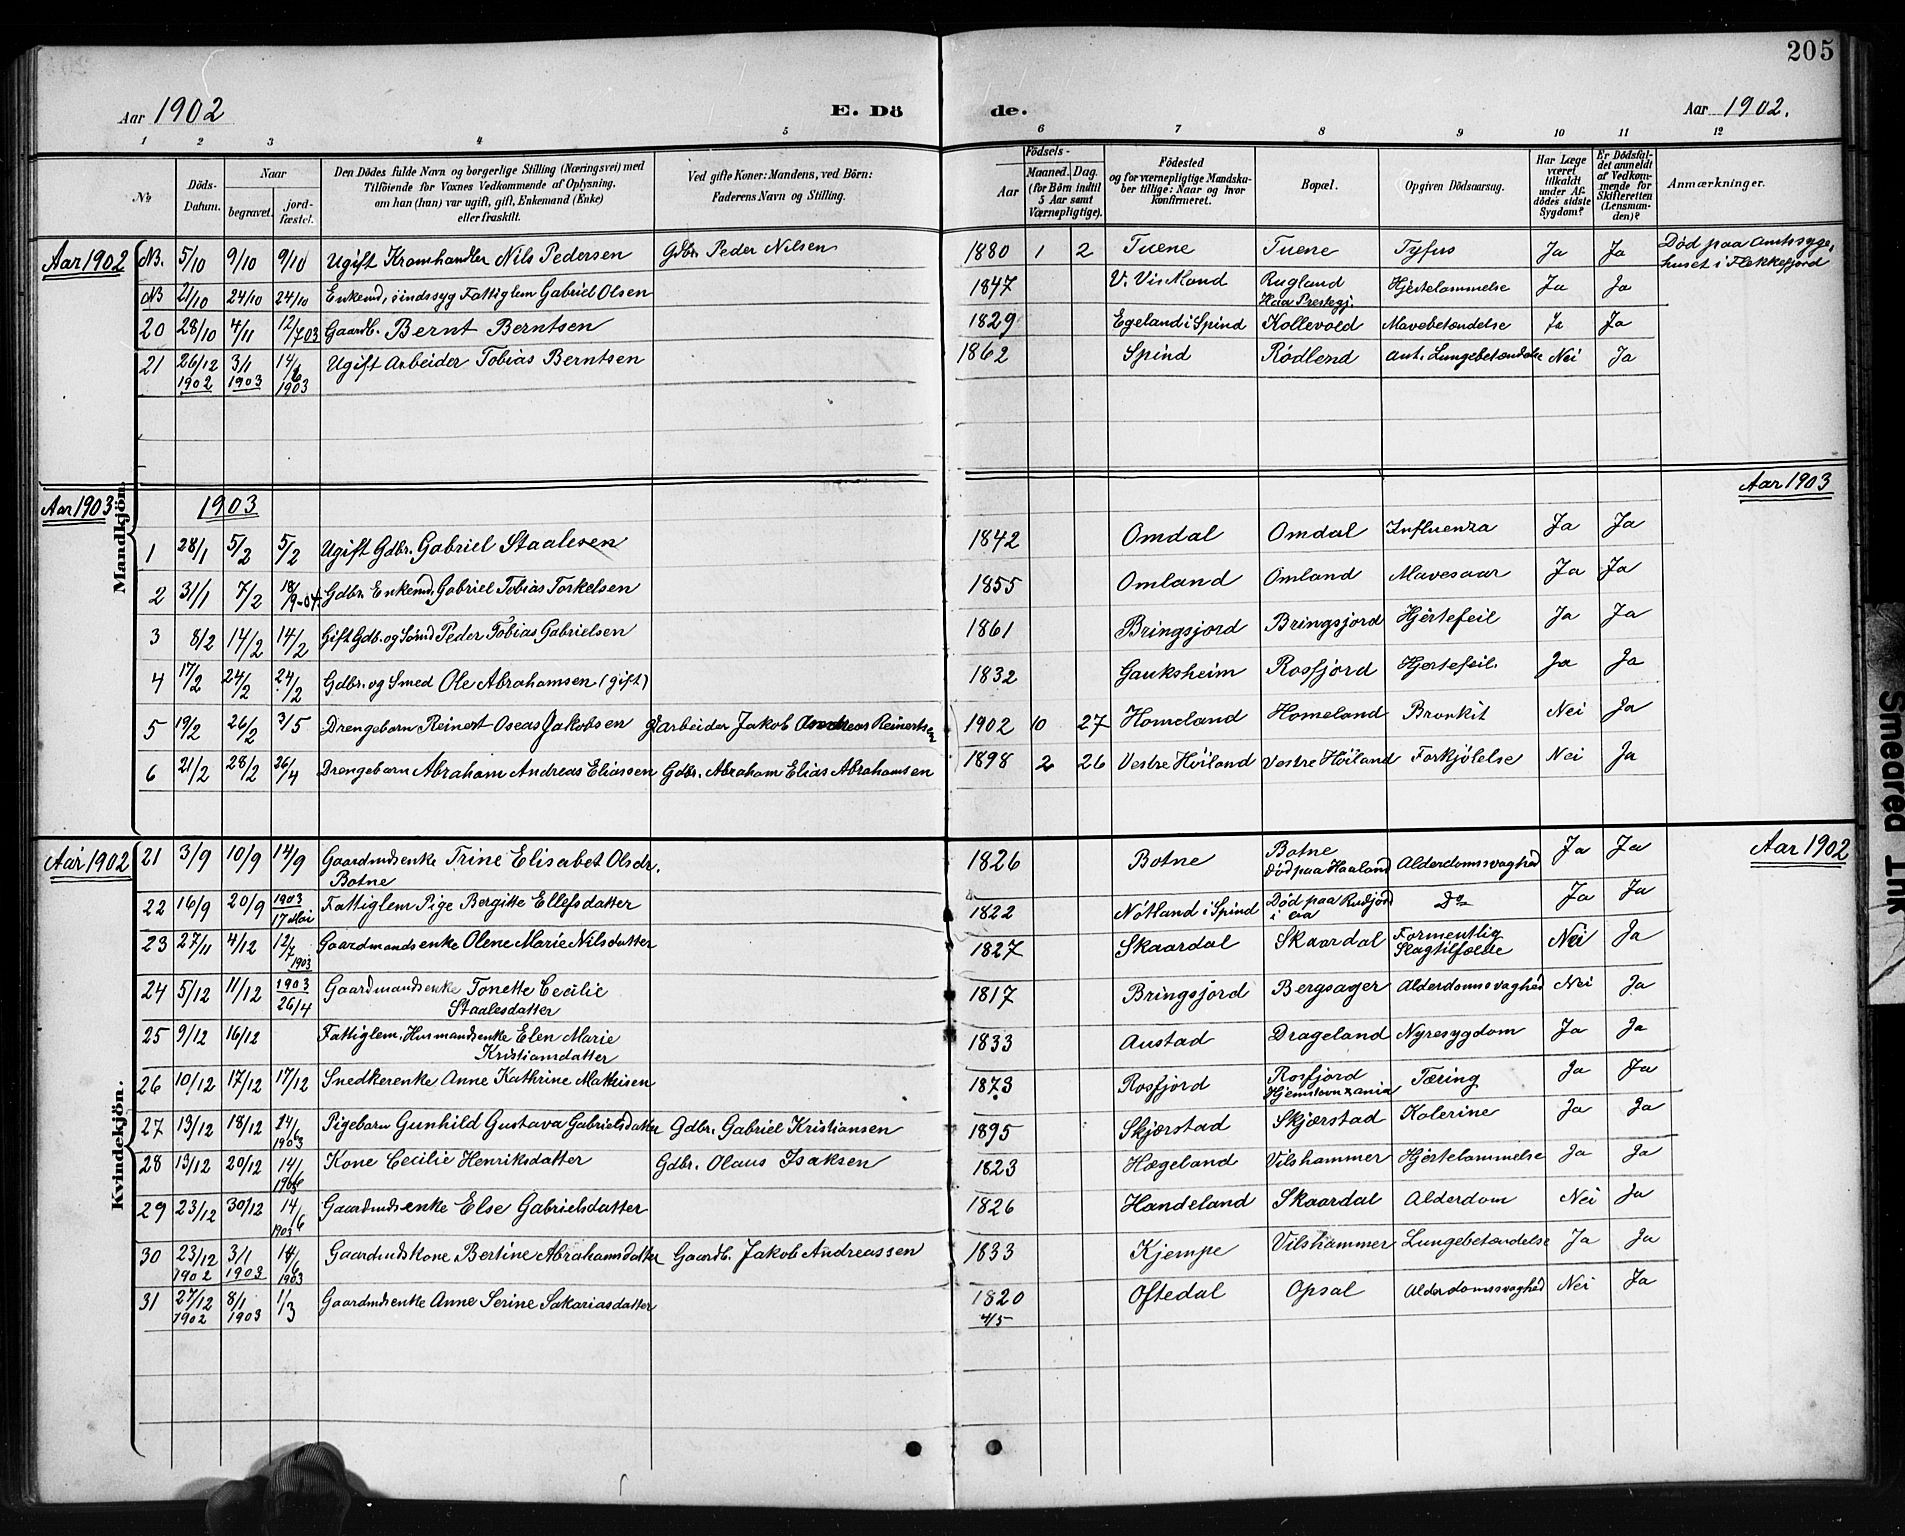 205
Aar 1902 E. Dö de. Aar 1902.
1 2 3 4 5 6 7 8 9 10 11 12
No Döds-Datum. Naar begravet. jord-fæstet. Den Dödes fulde Navn og borgerlige Stilling (Næringsvei) med Tilföiende for Voxnes Vedkommende af Oplysning, om han (hun) var ugift, gift, Enkemand (Enke) eller fraskilt. Ved gifte Koner: Mandens, ved Börn: Faderens Navn og Stilling. Födsels- Aar Maaned. Dag. (for Börn indtil 5 Aar samt Værnepligtige). Födested og for værnepligtige Mandska-ber tillige: Naar og hvor konfirmeret. Bopæl. Opgiven Dödsaarsag. Har Læge været tilkaldt under Af-dödes sidste Sygdom? Er Dödsfal-det anmeldt af Vedkom-mende for Skifteretten (Lensman-den)? Anmærkninger.
Mandkjön.
Aar 1902 NB. 5/10 9/10 9/10 Ugift Kramhandler Nils Pedersen Gdbr. Peder Nilsen 1880 1 2 Tuene Tuene Tyfus Ja Ja Död paa Amtssyge-
huset i Flekkefjord
NB 21/10 24/10 24/10 Enkemd, sindssyg Fattiglem Gabriel Olsen 1847 V. Vis Mand Rugland Hjertelammelse Ja Ja
Haa Prestegj
20 28/10 4/11 12/7 03 Gaardb. Bernt Berntsen 1829 Egeland i Spind Kollevold Mavebetændelse Ja Ja
21 26/12 1902 3/1 1903 14/6 1903 Ugift Arbeider Tobias Berntsen 1862 Spind Rödlend Ant. Lungebetændelse Nei Ja
Aar 1903 1903 Aar 1903
1 28/1 5/2 5/2 Ugift Gdbr. Gabriel Staalesen 1842 Omdal Omdal Influenza Ja Ja
2 31/1 7/2 18/9-04 Gdbr. Enkemd. Gabriel Tobias Torkelsen 1855 Omland Omland Mavesaar Ja Ja
3 8/2 14/2 14/2 Gift Gdb. og Smd Peder Tobias Gabrielsen 1861 Bringsjord Bringsjord Hjertefeil Ja Ja
4 17/2 24/2 24/2 Gdbr. og Smed Ole Abrahamsen (gift) 1832 Gauksheim Rosfjord Hjertefeil. Ja Ja
5 19/2 26/2 3/5 Drengebarn Reinert Oseas Jakobsen Arbeider Jakob Andreas Reinertsen 1902 10 27 Homeland Homeland Bronkit Nei Ja
6 21/2 28/2 26/4 Drengebarn Abraham Andreas Eliassen Gdbr. Abraham Elias Abrahamsen 1898 2 26 Vestre Höiland Vestre Höiland Forkjölelse Nei Ja
Kvindekjön.
Aar 1902 21 3/9 10/9 14/9 Gaardmdsenke Trine Elisabet Olsdr. 1826 Botne Botne Alderdomssvaghed Ja Ja Aar 1902
Botne Död paa Haaland
22 16/9 20/9 1903 17 Mai Fattiglem Pige Bergitte Ellefsdatter 1822 Nötland i Spind Död paa Rudjord Do Ja Ja
23 27/11 4/12 12/7 1903 Gaardmandsenke Olene Marie Nilsdatter 1827 Skaardal Skaardal Formentlig Slagtilfælde Nei Ja
24 5/12 11/12 1903 26/4 Gaardmandsenke Tonette Cecilie 1817 Bringsjord Bergsager Alderdomssvaghed Nei Ja
Staalesdatter
25 9/12 16/12 Fattiglem, Husmandsenke Elen Marie 1833 Austad Drageland Nyresygdom Ja Ja
Kristiansdatter
26 10/12 17/12 17/12 Snedkerenke Anne Kathrine Mathisen 1873 Rosfjord Rosfjord Tæring Ja Ja
27 13/12 18/12 24/6 1903 Pigebarn Gunhild Gustava Gabrielsdatter Gdbr. Gabriel Kristiansen 1895 Skjærstad Skjærstad Kolerine Ja Ja
28 13/12 20/12 14/6 1903 Kone Cecilie Henriksdatter Gdbr. Olaus Isaksen 1823 Hægeland Vilshammer Hjertelammelse Ja Ja
29 23/12 30/12 14/6 1903 Gaardmdsenke Else Gabrielsdatter 1826 Handeland Skaardal Alderdom Nei Ja
30 23/12 1902 3/1 1903 14/6 1903 Gaardmdskone Bertine Abrahamsdatter Gaardb. Jakob Andreassen 1833 Kjempe Vilshammer Lungebetændelse Ja Ja
31 27/12 1902 8/1 1903 1/3 Gaardmdsenke Anne Serine Sakariasdatter 1820 Oftedal Opsal Alderdomssvaghed Nei Ja
4/5
Smeared Ink